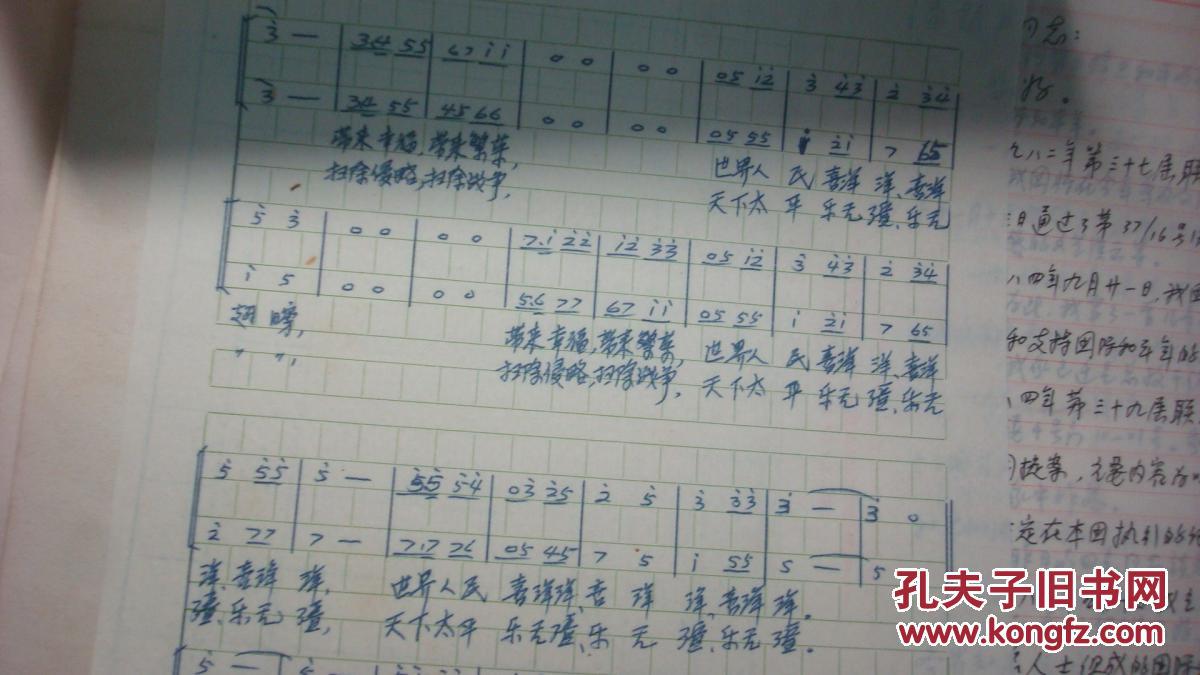 3 — | 34 55 | 67 i i | 0 0 | 0 0 | 05 i2 | 3 43 | 2 34 |
3 — | 34 55 | 45 66 | 0 0 | 0 0 | 05 55 | i 2i | 7 65 |
带来幸福,带来繁荣, 世界人 民 喜洋 洋、喜洋
扫除侵略,扫除战争, 天下太 平 乐无 疆、乐无
5 3 | 0 0 | 0 0 | 7.i 22 | i2 33 | 05 i2 | 3 43 | 2 34 |
i 5 | 0 0 | 0 0 | 5.6 77 | 67 i i | 05 55 | i 2i | 7 65 |
带来幸福,带来繁荣, 世界人 民 喜洋 洋、喜洋
〃 〃, 扫除侵略,扫除战争, 天下太 平 乐无 疆、乐无
5 55 | 5 — | 55 54 | 03 25 | 2 5 | 3 33 | 3 — | 3 0
2 77 | 7 — | 7.7 76 | 05 45 | 7 5 | i 55 | 5 — | 5
洋、喜洋 洋, 世界人民 喜洋洋、喜 洋 洋、喜洋 洋。
疆、乐无 疆, 天下太平 乐无疆、乐 无 疆、乐无 疆。
5 —
志:
好。
八二年第三十七届联
日通过了第37/16号
八四年九月廿一日,我国
和支持国际和平年的
四年第三十九届联
提案,主要内容为
定在本国执行的
人士组成的国际
孔夫子旧书网
www.kongfz.com